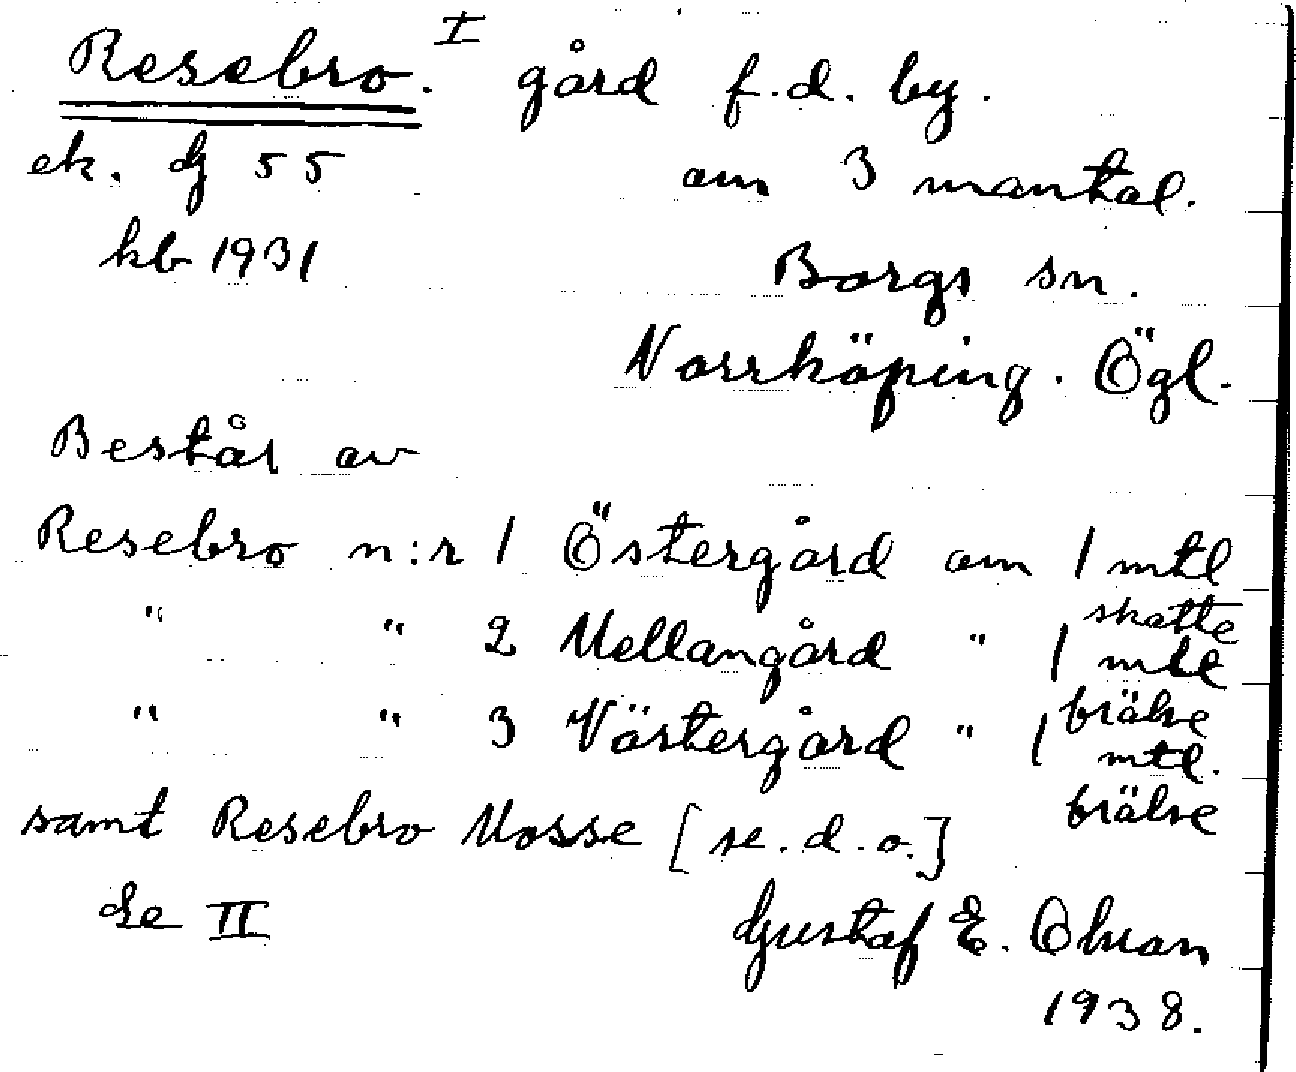 Resebro. I gård f.d. by.
ek. G 55 om 3 mantal.
kb 1931 Borgs sn.
Norrköping. Ögl.
Består av
Resebro n:r 1 Östergård om 1 mtl skatte
" " 2 Mellangård " 1 mtl frälse
" " 3 Västergård " 1 mtl. frälse
samt Resebro Mosse [se. d. o.]
Se II Gustaf E.
1938.